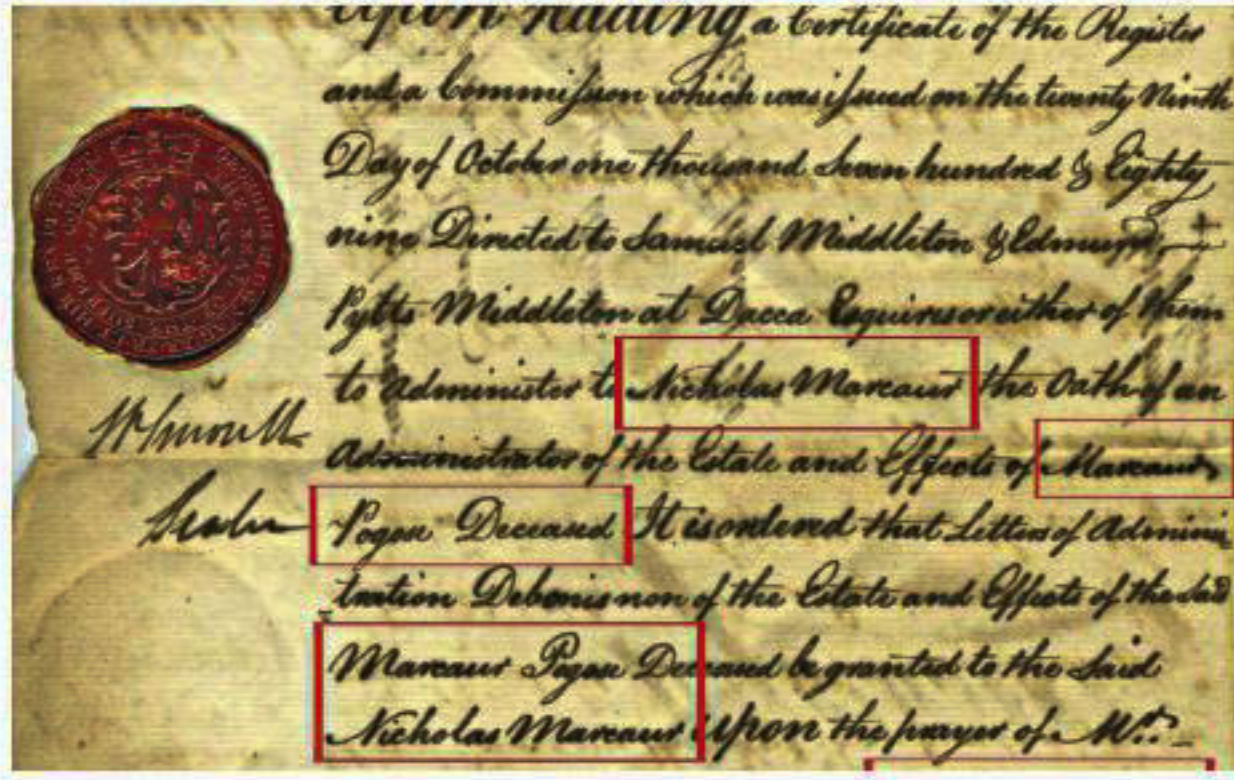 Upon reading a Certificate of the Register
and a Commission which was issued on the twenty Ninth
Day of October one thousand Seven hundred & Eighty
nine Directed to Samuel Middleton & Edmund
Pytts Middleton at Dacca Esquires or either of them
to Administer to Nicholas Marcaur the Oath of an
Administrator of the Estate and Effects of Marcaur
Pogose Deceasd It is ordered that Letters of Adminis
tration Debonis non of the Estate and Effects of the said
Marcaur Pogose Deceasd be granted to the Said
Nicholas Marcaur Upon the prayer of Mr.